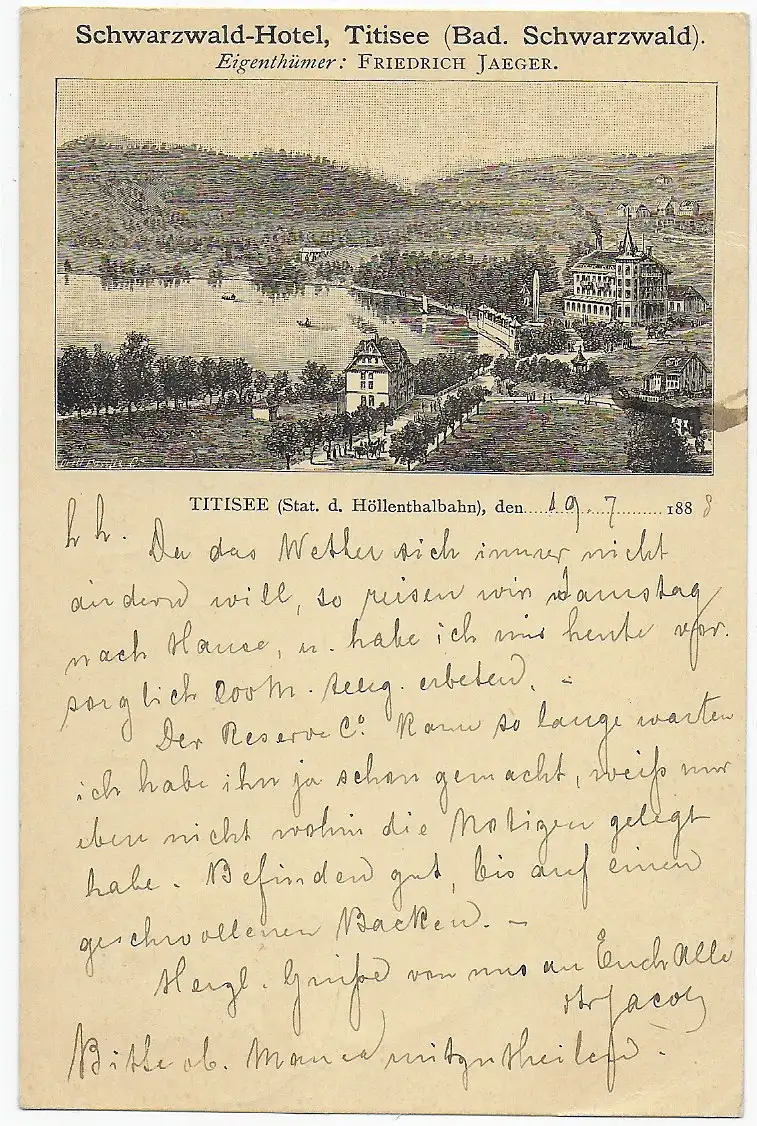 Schwarzwald-Hotel, Titisee (Bad. Schwarzwald).
Eigenthümer: FRIEDRICH JAEGER.
TITISEE (Stat. d. Höllenthalbahn), den 19. 7 1888
Da das Wetter sich immer nicht
ändern will, so reisen wir Samstag
nach Hause, u. habe ich mir heute vor-
sorglich 200 M. teleg. erbeten. –
Der Reserve Co. kann so lange warten
ich habe ihn ja schon gemacht, weiß nur
eben nicht wohin die Notizen gelegt
habe. Befinden gut, bis auf einen
geschwollenen Backen. –
Herzl. Grüße von uns an Euch Alle
Ihr Jacob
Bitte ob. mitzutheilen.